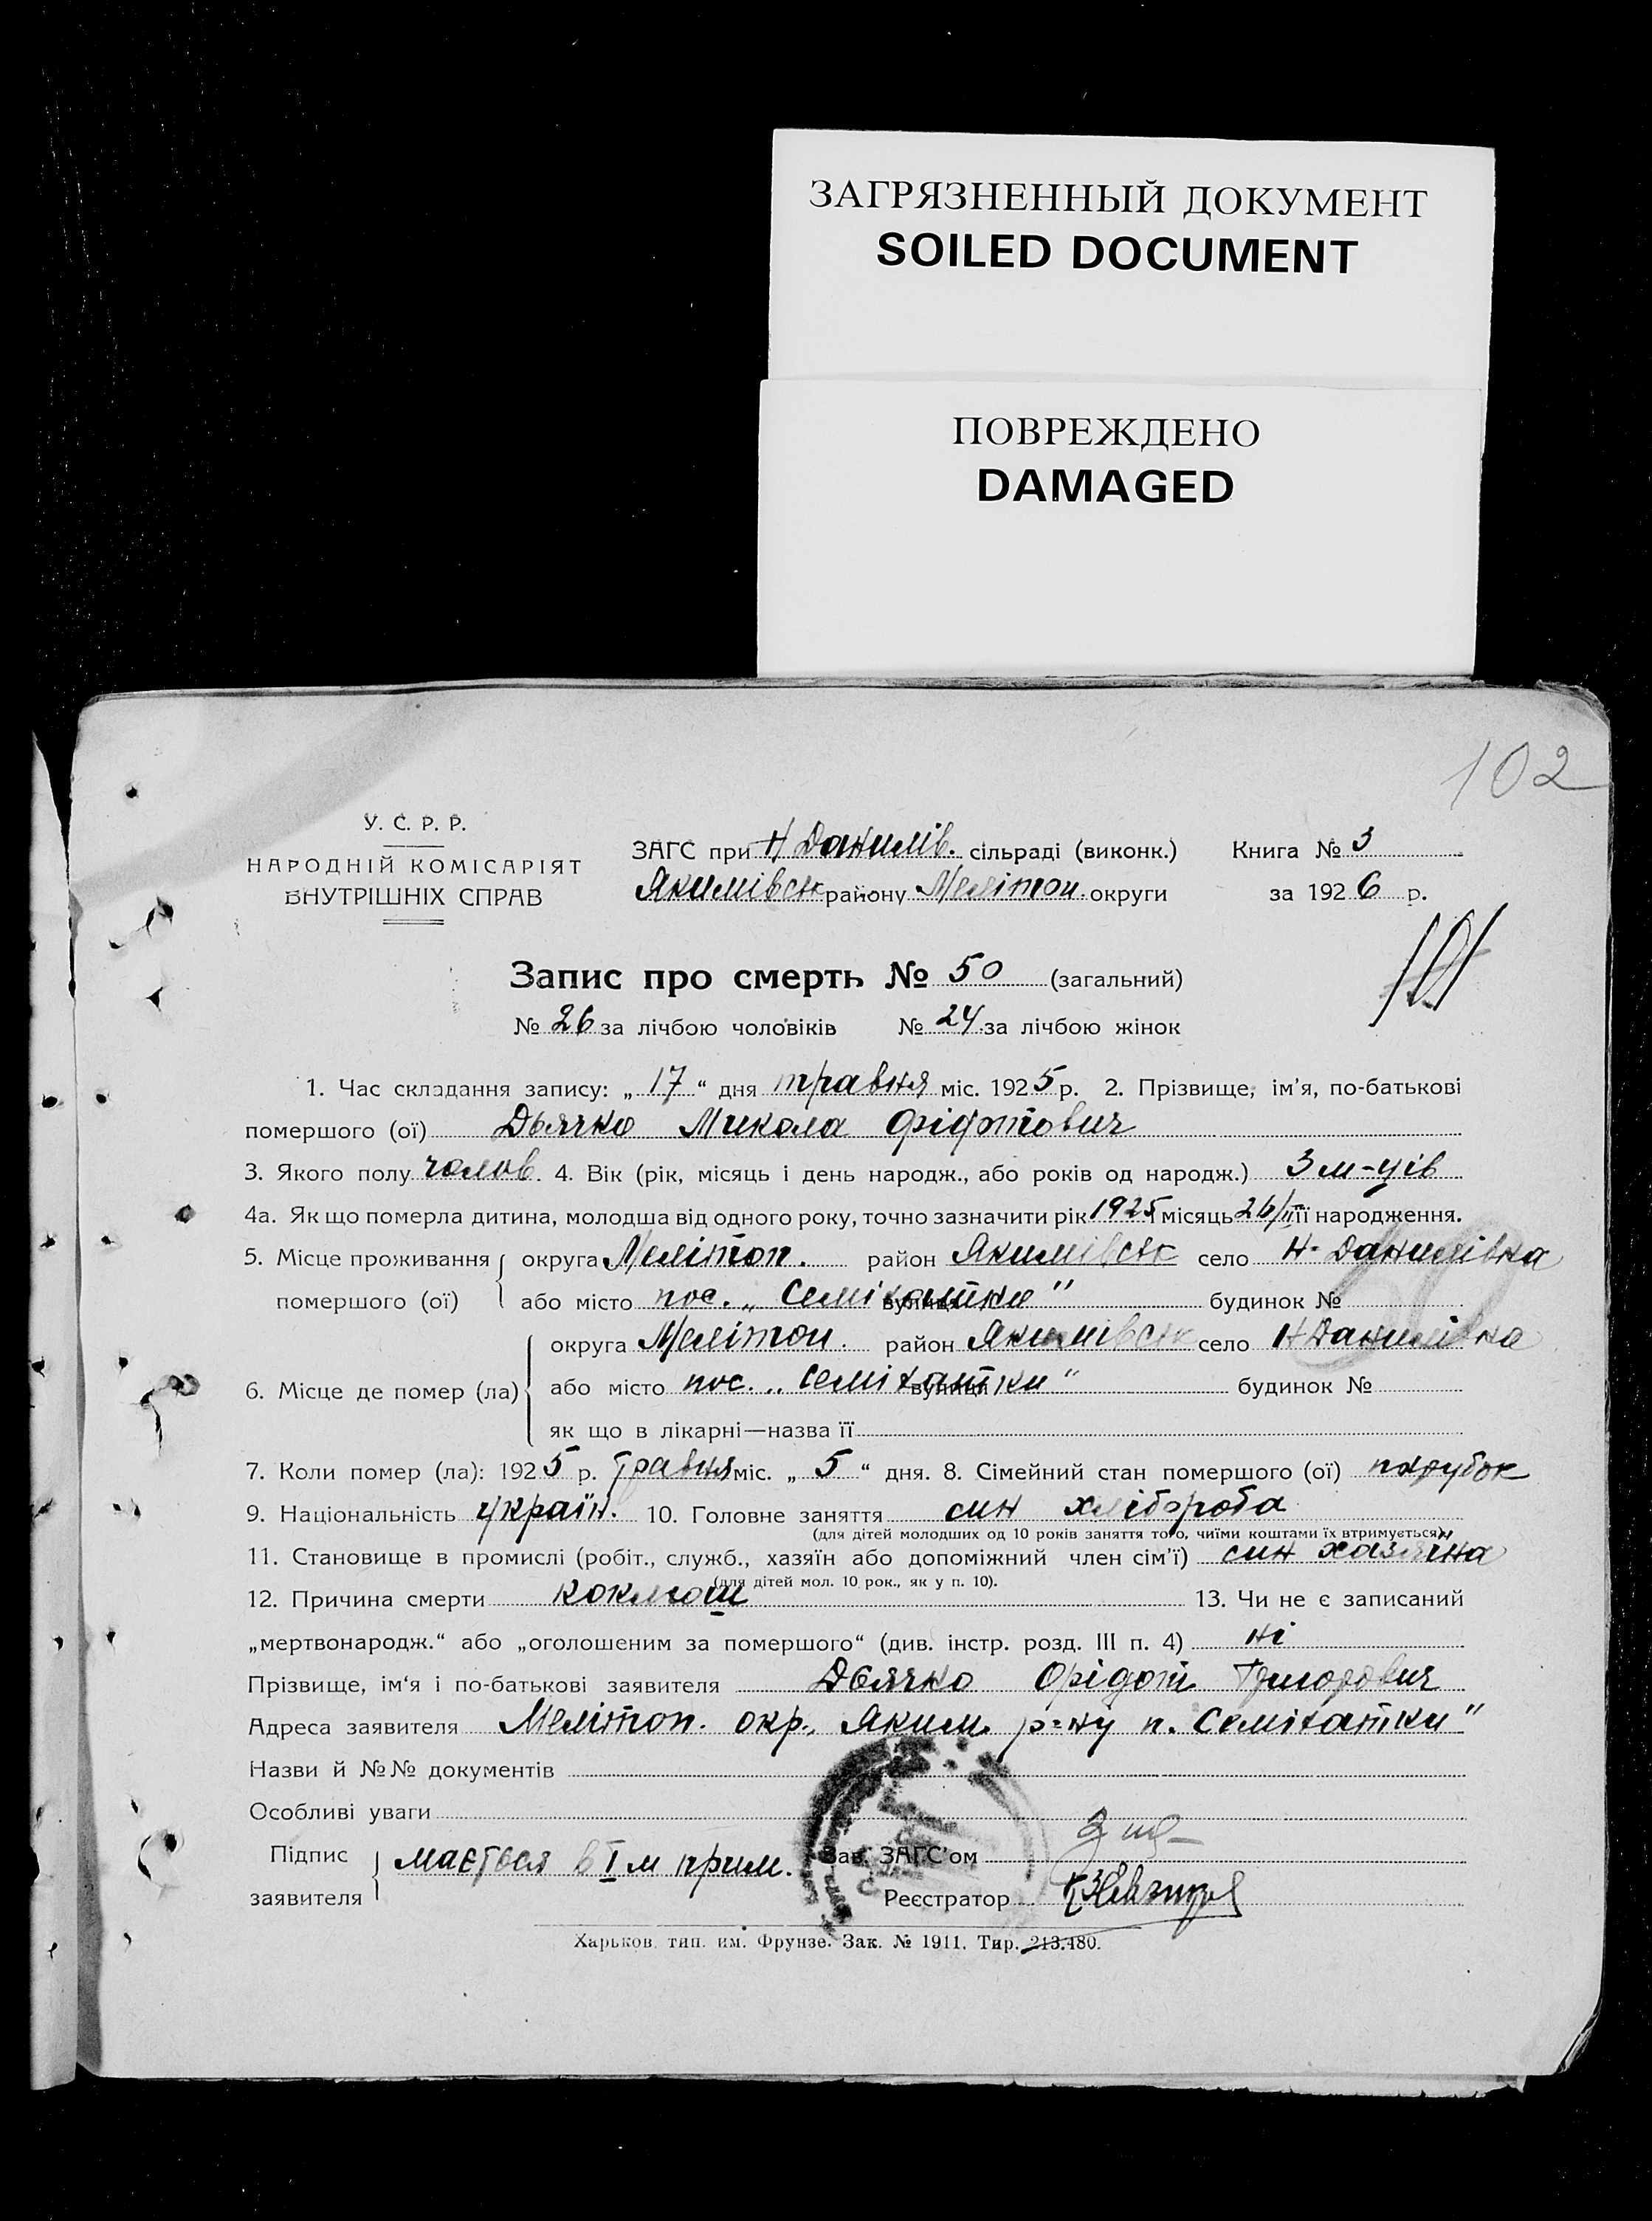 ЗАГРЯЗНЕННЫЙ ДОКУМЕНТ
SOILED DOCUMENT
ПОВРЕЖДЕНО
DAMAGED
102
У. С. Р. Р.
НАРОДНІЙ КОМІСАРІЯТ
ВНУТРІШНІХ СПРАВ
ЗАГС при Н Данилів. сільраді (виконк.) Книга № 3
Якимівськ району Мелітоп. округи за 1926 р.
101
Запис про смерть № 50 (загальний)
№ 26 за лічбою чоловіків № 24 за лічбою жінок
1. Час складання запису: „17“ дня травня міс. 1925 р. 2. Прізвище, ім'я, по-батькові
помершого (ої) Дьячко Микола
3. Якого полу чолов. 4. Вік (рік, місяць і день народж., або років од народж.) 3 м-ців
4а. Як що померла дитина, молодша від одного року, точно зазначити рік 1925 місяць 26/II її народження.
5. Місце проживання округа Мелітоп. район Якимівськ село Н-Данилівка
помершого (ої) або місто пос. „Семіхатки" вулиця будинок №
округа Мелітоп. район Якимівськ село Н Данилівка
6. Місце де помер (ла) або місто пос. „Семіхатки" вулиця будинок №
як що в лікарні—назва її
7. Коли помер (ла): 1925 р. Травня міс. „5“ дня. 8. Сімейний стан помершого (ої) парубок
9. Національність україн. 10. Головне заняття син хлібороба
(для дітей молодших од 10 років заняття того, чиїми коштами їх втримується)
11. Становище в промислі (робіт., служб., хазяїн або допоміжний член сім'ї) син хазяина
(для дітей мол. 10 рок., як у п. 10).
12. Причина смерти коклюш 13. Чи не є записаний
„мертвонародж.“ або „оголошеним за помершого“ (див. інстр. розд. III п. 4) ні
Прізвище, ім'я і по-батькові заявителя Дьячко Григорович
Адреса заявителя Мелітоп. окр., Яким. р-ну п. Семіхатки"
Назви й №№ документів
Особливі уваги
Підпис
заявителя мається в I м прим.
Зав. ЗАГС'ом
Реєстратор
Харьков. тип. им. Фрунзе. Зак. № 1911. Тир. 213.480.